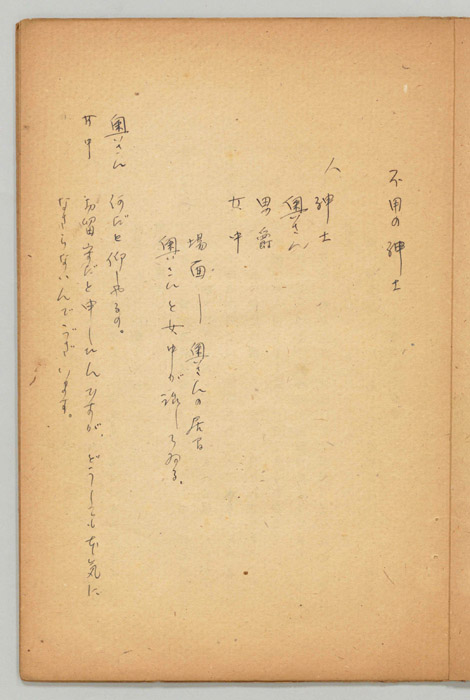 不用の紳士
人 紳士
奥さん
男爵
女中
場面― 奥さんの居間
奥さんと女中が話してゐる。
奥さん 何だと仰しやるの。
女中 お留守だと申したんですが、どうしても本気に
なさらないんでございます。